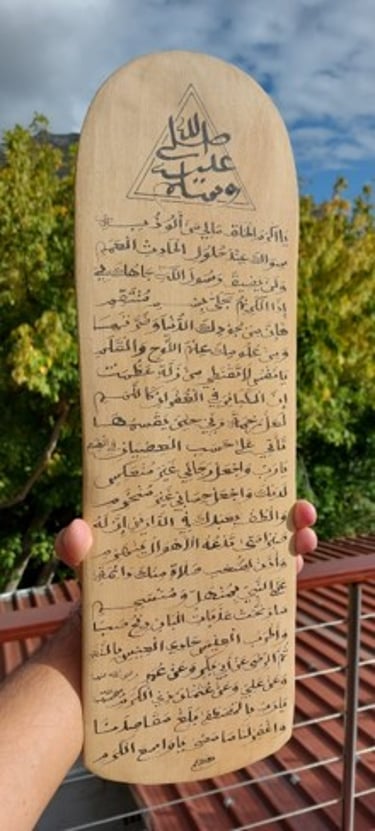 صلى الله
عليه
يا أكرم الخلق مالي من ألوذ به
سواك عند حلول الحادث العمم
ولن يضيق رسول الله جاهك بي
إذا الكريم تجلى باسم منتقم
فإن من جودك الدنيا وضرتها
ومن علومك علم اللوح والقلم
يا نفس لا تقنطي من زلة عظمت
إن الكبائر في الغفران كاللمم
لعل رحمة ربي حين يقسمها
تأتي على حسب العصيان في القسم
يا رب واجعل رجائي غير منعكس
لديك واجعل حسابي غير منخرم
والطف بعبدك في الدارين إن له
صبرا متى تدعه الأهوال ينهزم
وأذن لسحب صلاة منك دائمة
على النبي بمنهل ومنسجم
ما رنحت عذبات البان ريح صبا
وأطرب العيس حادي العيس بالنغم
ثم الرضى عن أبي بكر وعن عمر
وعن علي وعن عثمان ذي الكرم
يا رب بالمصطفى بلغ مقاصدنا
واغفر لنا ما مضى يا واسع الكرم